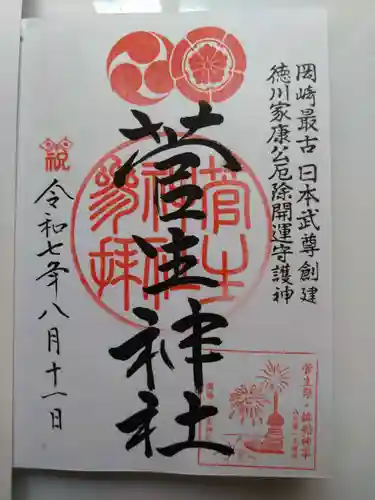 岡崎最古 日本武尊創建
徳川家康公厄除開運守護神
菅生神社
参拝
菅生神社
祝
令和七年八月十一日
菅生祭・鉾船神事